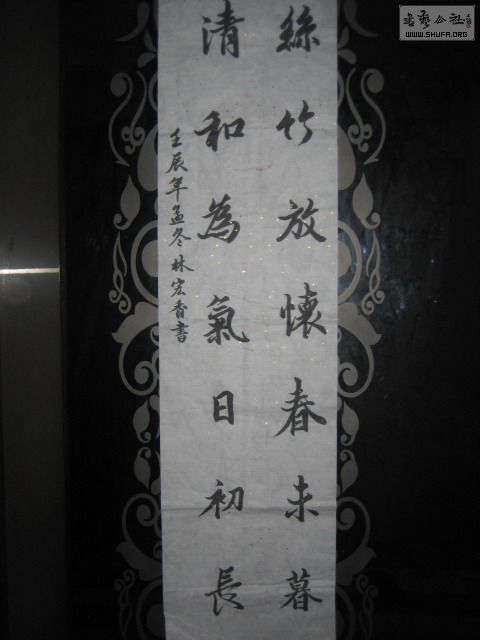 絲竹放懷春未暮
清和為氣日初長
壬辰年孟冬林宏香書
书艺公社
WWW.SHUFA.ORG